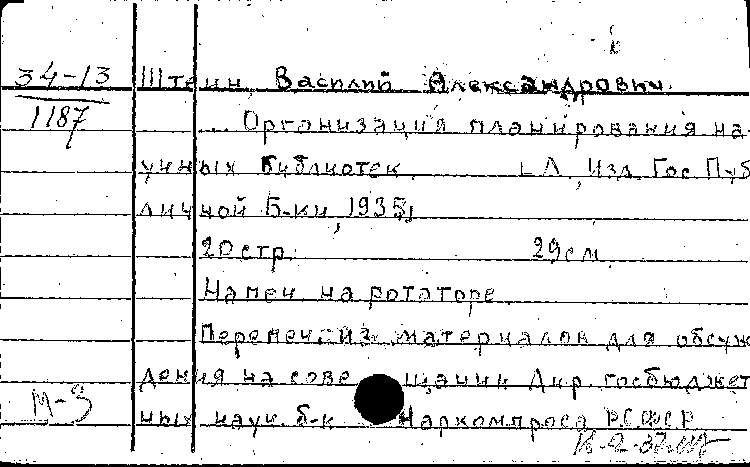 34-13 Штейн, Василий Александрович.
1187
... Организация планирования на-
учных библиотек. Л., Изд. Гос. Пуб
личной Б-ки, 1935,
20 стр. 29 см.
Напеч. на ротаторе.
Перепеч. из материалов для обсуж
дения на сове щании Дир. госбюджет
ных науч. б-к Наркомпроса РСФСР
М-3